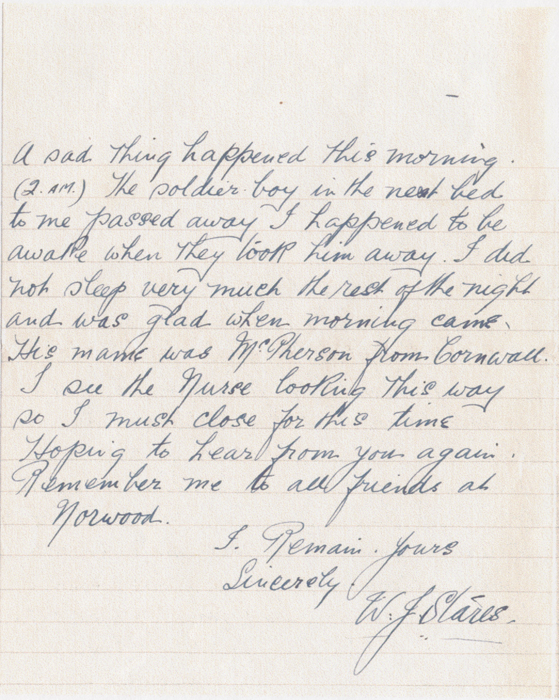 A sad thing happened this morning.
(2. AM.) The soldier boy in the next bed
to me passed away I happened to be
awake when they took him away. I did
not sleep very much the rest of the night
and was glad when morning came.
His name was McPherson from Cornwall.
I see the Nurse looking this way
so I must close for this time
Hoping to hear from you again.
Remember me to all friends at
Norwood.
I. Remain. Yours
Sincerely.
W. J. Stares.